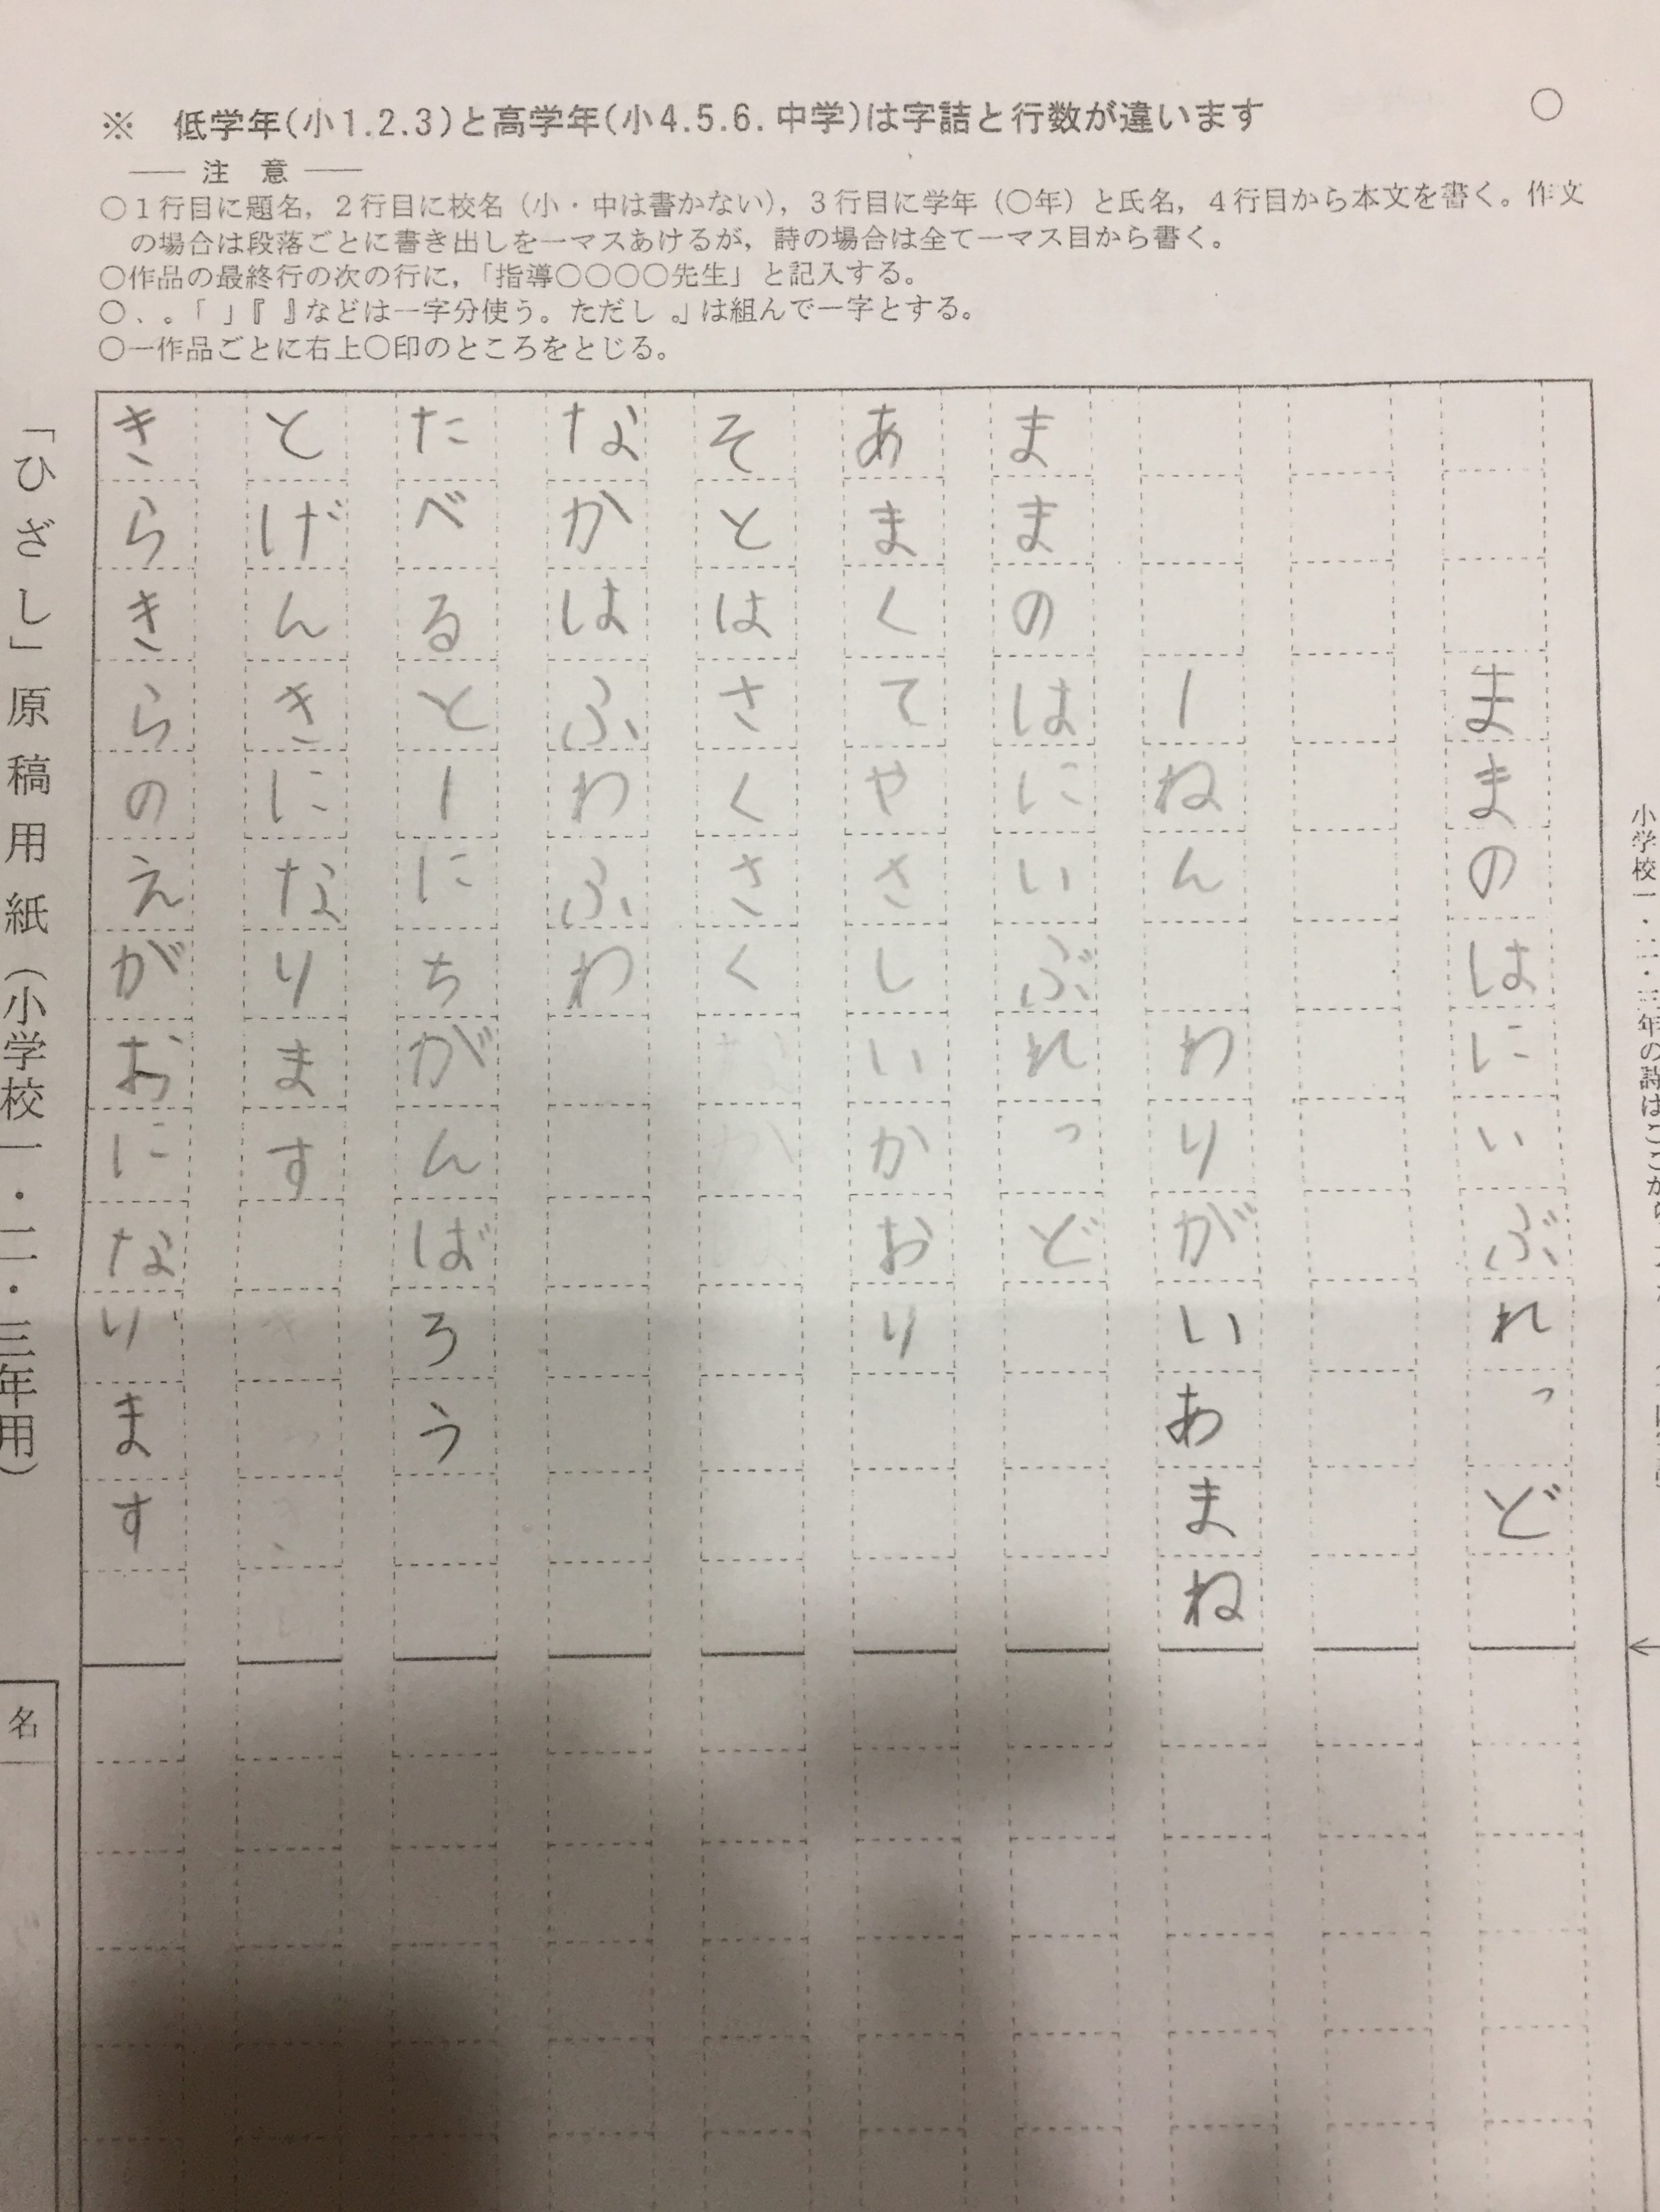 ※ 低学年(小1.2.3)と高学年(小4.5.6.中学)は字詰と行数が違います
○
── 注 意 ──
○1行目に題名，2行目に校名（小・中は書かない），3行目に学年（○年）と氏名，4行目から本文を書く。作文
の場合は段落ごとに書き出しを一マスあけるが，詩の場合は全て一マス目から書く。
○作品の最終行の次の行に，「指導○○○○先生」と記入する。
○、。「 」『 』などは一字分使う。ただし 。」は組んで一字とする。
○一作品ごとに右上○印のところをとじる。
小学校一・二・三年の詩はここから
ままのはにいぶれっど
1ねん わりがいあまね
ままのはにいぶれっど
あまくてやさしいかおり
そとはさくさく
なかはふわふわ
たべると1にちがんばろう
とげんきになります
きらきらのえがおになります
「ひざし」原稿用紙（小学校一・二・三年用）
名